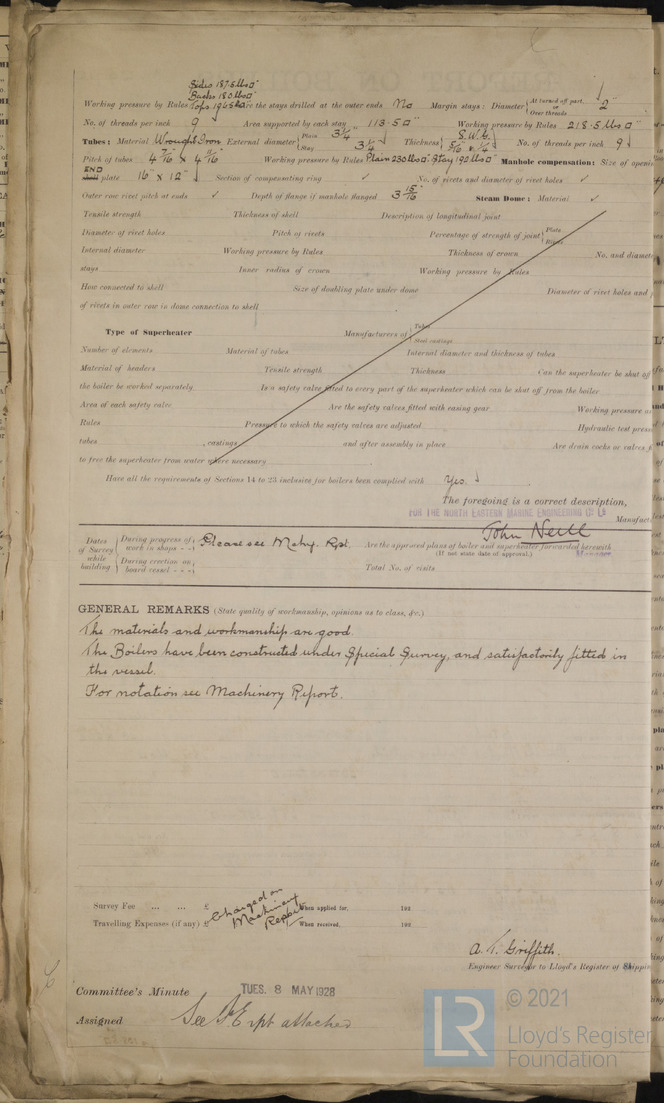 Sides 187.5 lbs □"
Backs 180 lbs □"
Working pressure by Rules Tops 196 lbs □" Are the stays drilled at the outer ends No Margin stays: Diameter { At turned off part, or Over threads 2"
No. of threads per inch 9 Area supported by each stay 113.5 □" Working pressure by Rules 218.5 lbs □"
Tubes: Material Wrought Iron External diameter { Plain 3 1/4" Stay 3 1/4" Thickness { 8 W.G. 5/16" & 1/4" No. of threads per inch 9
Pitch of tubes 4 7/16" x 4 9/16" Working pressure by Rules Plain 230 lbs □". Stay 192 lbs □" Manhole compensation: Size of openi
END
shell plate 16" x 12" Section of compensating ring ✓ No. of rivets and diameter of rivet holes ✓
Outer row rivet pitch at ends ✓ Depth of flange if manhole flanged 3 15/16" Steam Dome: Material ✓
Tensile strength Thickness of shell Description of longitudinal joint
Diameter of rivet holes Pitch of rivets Percentage of strength of joint { Plate Rivets
Internal diameter Working pressure by Rules Thickness of crown No. and diamete
stays Inner radius of crown Working pressure by Rules
How connected to shell Size of doubling plate under dome Diameter of rivet holes and
of rivets in outer row in dome connection to shell
Type of Superheater Manufacturers of { Tubes Steel castings
Number of elements Material of tubes Internal diameter and thickness of tubes
Material of headers Tensile strength Thickness Can the superheater be shut of
the boiler be worked separately Is a safety valve fitted to every part of the superheater which can be shut off from the boiler
Area of each safety valve Are the safety valves fitted with easing gear Working pressure as
Rules Pressure to which the safety valves are adjusted Hydraulic test press
tubes , castings and after assembly in place Are drain cocks or valves f
to free the superheater from water where necessary
Have all the requirements of Sections 14 to 23 inclusive for boilers been complied with Yes.
The foregoing is a correct description,
FOR THE NORTH EASTERN MARINE ENGINEERING Co Ld Manufact
John Neill
Manager
Dates of Survey while building { During progress of work in shops - - Please see Mchy. Rpt. Are the approved plans of boiler and superheater forwarded herewith
(If not state date of approval.)
During erection on board vessel - - - Total No. of visits
GENERAL REMARKS (State quality of workmanship, opinions as to class, &c.)
The materials and workmanship are good.
The Boilers have been constructed under Special Survey, and satisfactorily fitted in
the vessel.
For notation see Machinery Report.
Survey Fee ... ... £ Charged on Machinery Report When applied for, 192
Travelling Expenses (if any) £ When received, 192
A. T. Griffith.
Engineer Surveyor to Lloyd's Register of Shippin
Committee's Minute TUES. 8 MAY 1928
Assigned See F.E. rpt attached
LR
© 2021
Lloyd's Register
Foundation